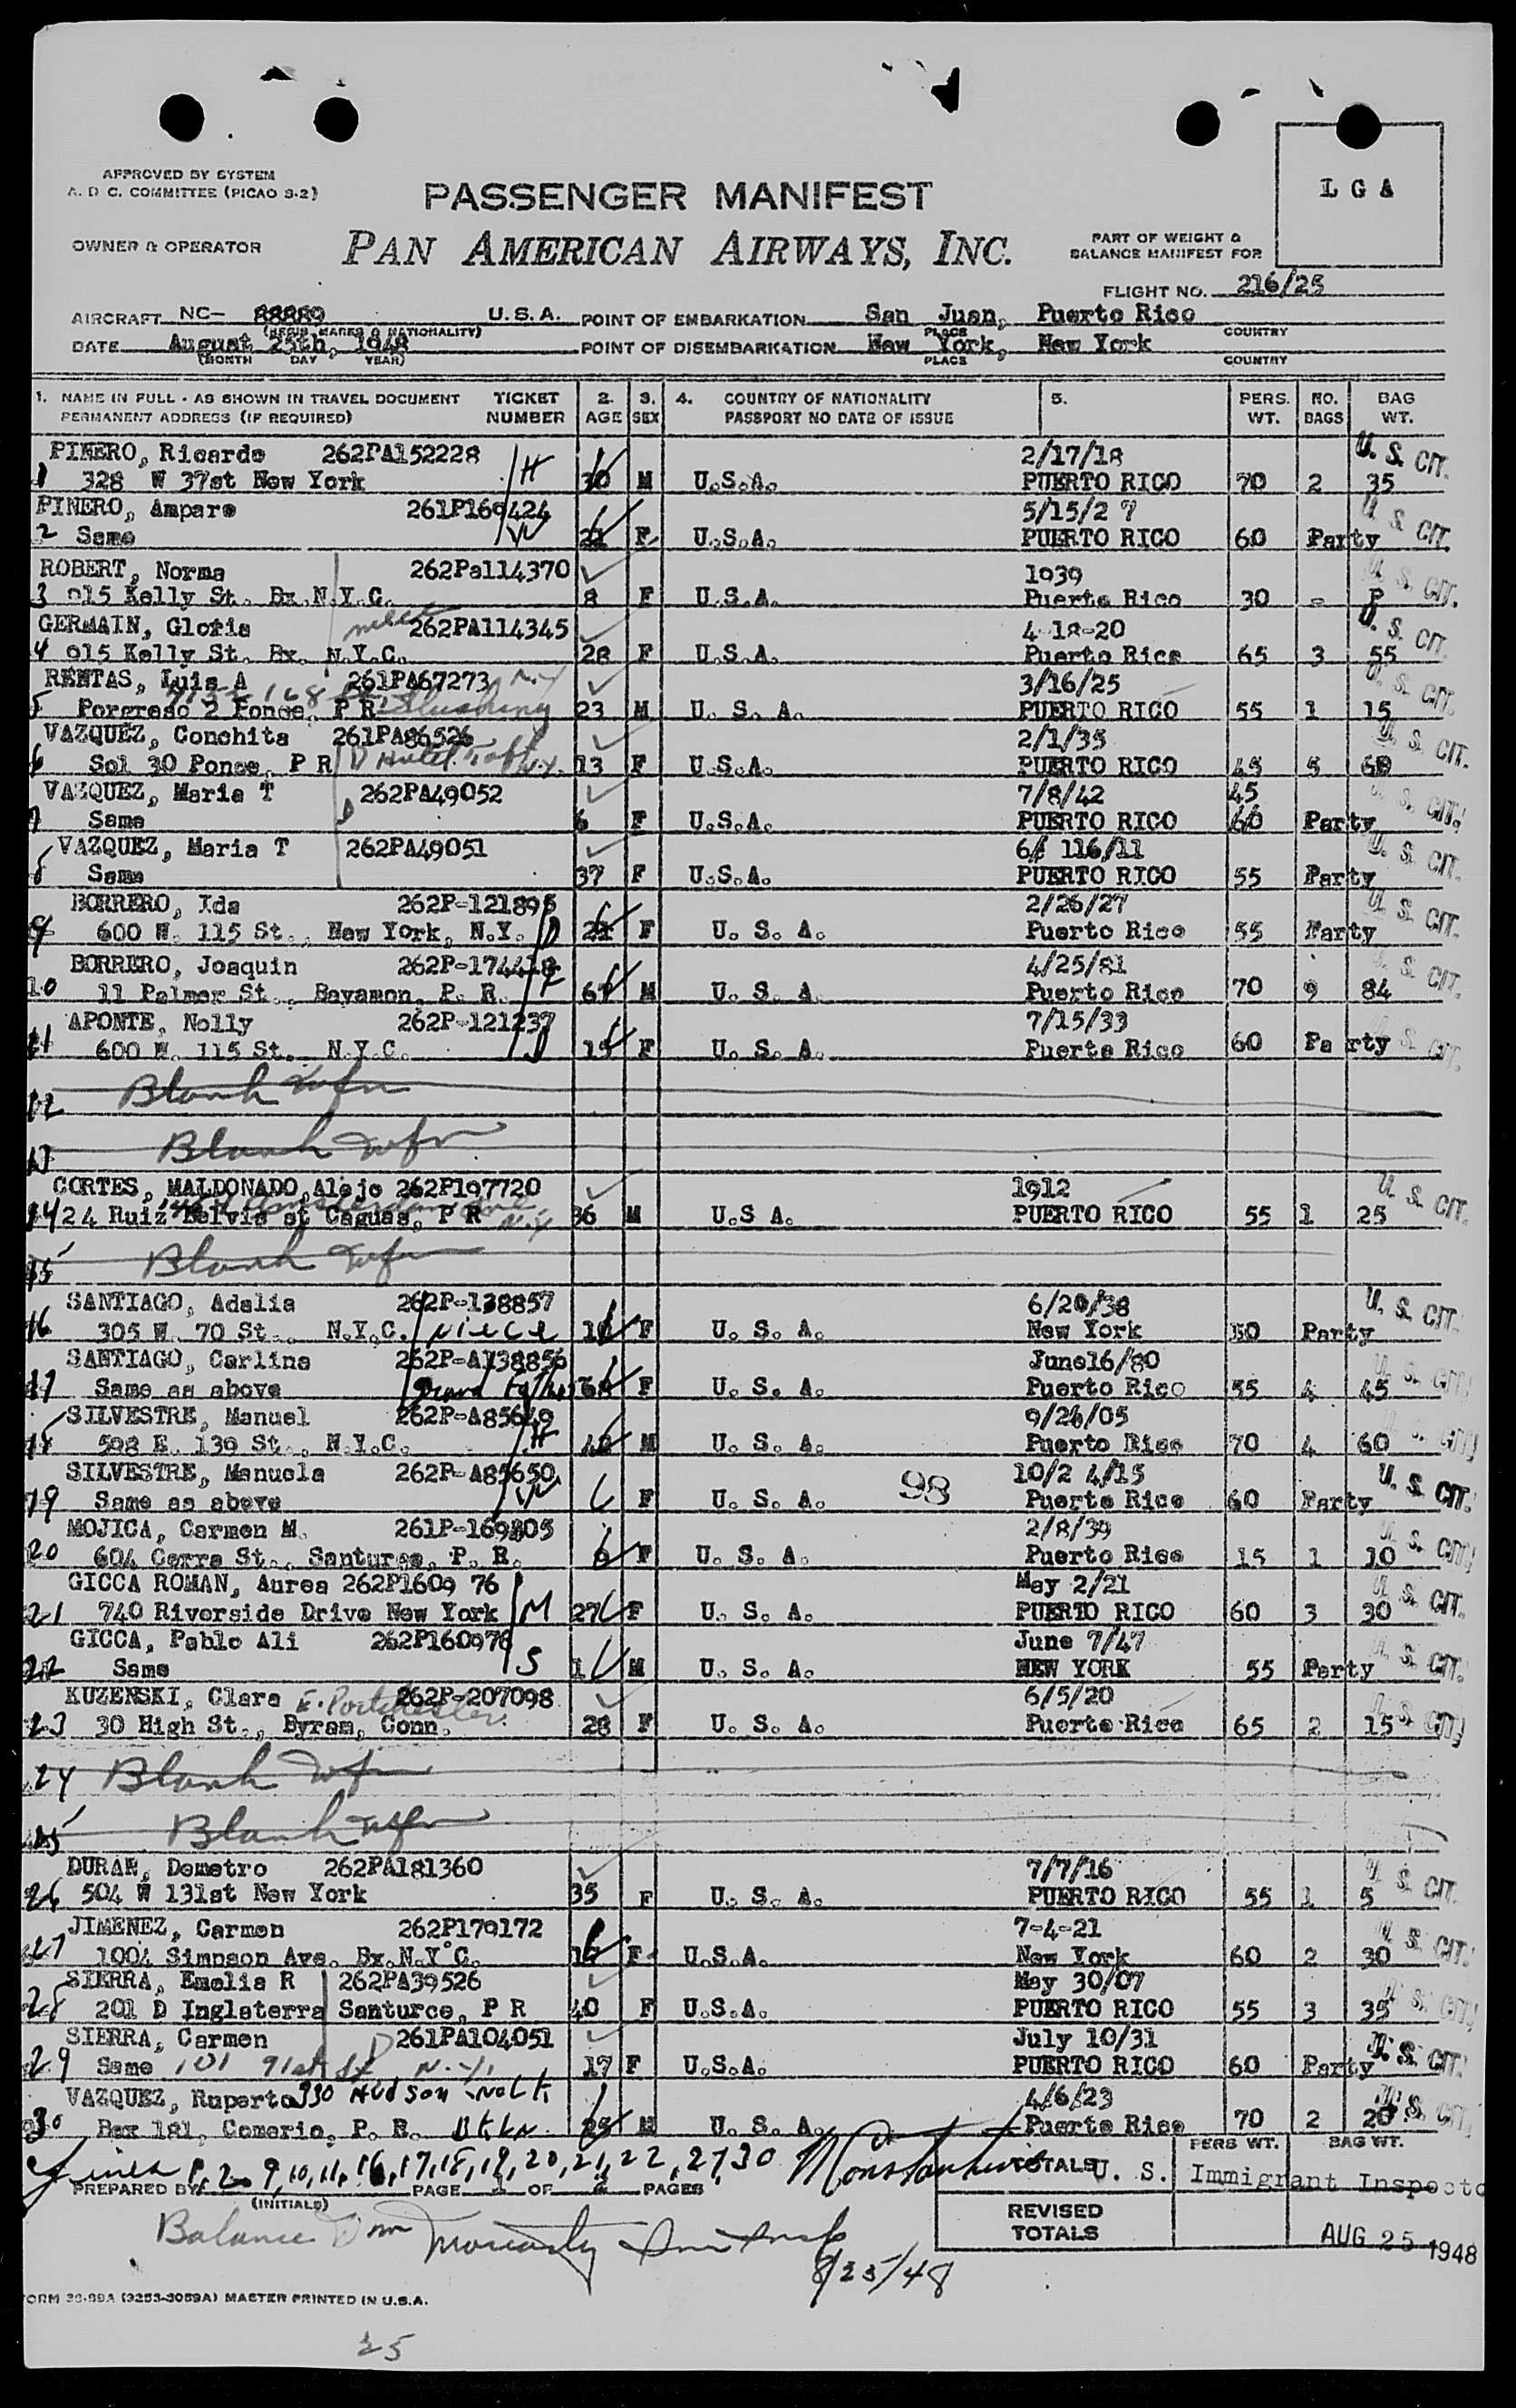 APPROVED BY SYSTEM
A. D C. COMMITTEE (PICAO 3-2)
PASSENGER MANIFEST
L G A
OWNER & OPERATOR
PAN AMERICAN AIRWAYS, INC.
PART OF WEIGHT &
BALANCE MANIFEST FOR
FLIGHT NO. 216/25
AIRCRAFT NC- 88889 U.S.A. POINT OF EMBARKATION San Juan, Puerto Rico
(REGIS. MARKS & NATIONALITY) PLACE COUNTRY
DATE August 25th, 1948 POINT OF DISEMBARKATION New York, New York
(MONTH DAY YEAR) PLACE COUNTRY
1. NAME IN FULL - AS SHOWN IN TRAVEL DOCUMENT TICKET 2. 3. 4. COUNTRY OF NATIONALITY 5. PERS. NO. BAG
PERMANENT ADDRESS (IF REQUIRED) NUMBER AGE SEX PASSPORT NO DATE OF ISSUE WT. BAGS WT.
PINERO, Ricardo 262PA152228 2/17/18 U. S. CIT.
1 328 W 37st New York H 30 M U.S.A. PUERTO RICO 70 2 35
PINERO, Amparo 261P169424 5/15/2 7 U. S. CIT.
2 Same W 21 F U.S.A. PUERTO RICO 60 Party
ROBERT, Norma 262Pa114370 1939 U. S. CIT.
3 915 Kelly St. Bx.N.Y.C. 8 F U.S.A. Puerto Rico 30 - P
GERMAIN, Gloria niece 262PA114345 4-18-20 U. S. CIT.
4 915 Kelly St. Bx. N.Y.C. 28 F U.S.A. Puerto Rico 65 3 55
RENTAS, Luis A 261PA67273 N.Y 3/16/25 U. S. CIT.
5 Porgreso 2 Ponce, P R Flushing 23 M U. S. A. PUERTO RICO 55 1 15
VAZQUEZ, Conchita 261PA86526 2/1/35 U. S. CIT.
6 Sol 30 Ponce, P R D Hotel Taft N.Y. 13 F U.S.A. PUERTO RICO 45 5 60
VAZQUEZ, Maria T 262PA49052 7/8/42 45 U. S. CIT.
7 Same D 6 F U.S.A. PUERTO RICO 60 Party
VAZQUEZ, Maria T 262PA49051 116/11 U. S. CIT.
8 Same 37 F U.S.A. PUERTO RICO 55 Party
BORRERO, Ida 262P-121895 2/26/27 U. S. CIT.
9 600 W. 115 St., New York, N.Y. D 21 F U. S. A. Puerto Rico 55 Party
BORRERO, Joaquin 262P-174418 4/25/81 U. S. CIT.
10 11 Palmer St., Bayamon, P. R. F 67 M U. S. A. Puerto Rico 70 9 84
APONTE, Nolly 262P-121237 7/15/33
11 600 W. 115 St. N.Y.C. D 15 F U. S. A. Puerto Rico 60 Pa rty S. CIT.
12 Blank wfm
13 Blank wfm
CORTES, MALDONADO,Alejo 262P197720 1912 U. S. CIT.
14 24 Ruiz Belvis st Caguas, P R Amsterdam Ave. N.Y 36 M U.S A. PUERTO RICO 55 1 25
15 Blank wfm
SANTIAGO, Adalia 262P-138857 6/20/38 U. S. CIT.
16 305 W. 70 St., N.Y.C. Niece 10 F U. S. A. New York 50 Party
SANTIAGO, Carlina 262P-A138856 June16/80 U. S. CIT.
17 Same as above F U. S. A. Puerto Rico 55 4 45
SILVESTRE, Manuel 262P-A85649 9/26/05
18 598 E. 139 St., N.Y.C. H 42 M U. S. A. Puerto Rico 70 4 60 S. CIT.
SILVESTRE, Manuela 262P-A85650 98 10/2 4/15 U. S. CIT.
19 Same as above W F U. S. A. Puerto Rico 60 Party
MOJICA, Carmen M. 261P-169305 2/8/39
20 604 Cerra St., Santurce, P. R. F U. S. A. Puerto Rico 15 1 10 S. CIT.
GICCA ROMAN, Aurea 262P1609 76 May 2/21 U. S. CIT.
21 740 Riverside Drive New York M 27 F U. S. A. PUERTO RICO 60 3 30
GICCA, Pablo Ali 262P160976 June 7/47 U. S. CIT.
22 Same S 1 M U. S. A. NEW YORK 55 Party
KUZENSKI, Clara E. Portchester 262P-207098 6/5/20
23 30 High St., Byram, Conn. 28 F U. S. A. Puerto Rico 65 2 15 S. CIT.
24 Blank wfm
25 Blank wfm
DURAN, Demetro 262PA181360 7/7/16 U. S. CIT.
26 504 W 131st New York 35 F U. S. A. PUERTO RICO 55 1 5
JIMENEZ, Carmen 262P179172 7-4-21 U. S. CIT.
27 1004 Simpson Ave. Bx.N.Y.C. F U.S.A. New York 60 2 30
SIERRA, Emelia R 262PA39526 May 30/07
28 201 D Inglaterra Santurce, P R 40 F U.S.A. PUERTO RICO 55 3 35 S. CIT.
SIERRA, Carmen D 261PA104051 July 10/31 U. S. CIT.
29 Same 101 91st St N.Y. 17 F U.S.A. PUERTO RICO 60 Party
VAZQUEZ, Ruperto 330 Hudson 4/6/23 U. S. CIT.
30 Box 181, Comerio, P. R. Bkln 25 M U. S. A. Puerto Rico 70 2 20
Lines 1, 2, 9, 10, 11, 16, 17, 18, 19, 20, 21, 22, 27, 30 TOTALS PERS WT. BAG WT.
U. S. Immigrant Inspecto
PREPARED BY PAGE 1 OF 2 PAGES
(INITIALS)
REVISED
TOTALS
AUG 25 1948
Balance Moriarty Imm Insp
8/25/48
ORM 30-99A (3253-3059A) MASTER PRINTED IN U.S.A.
25